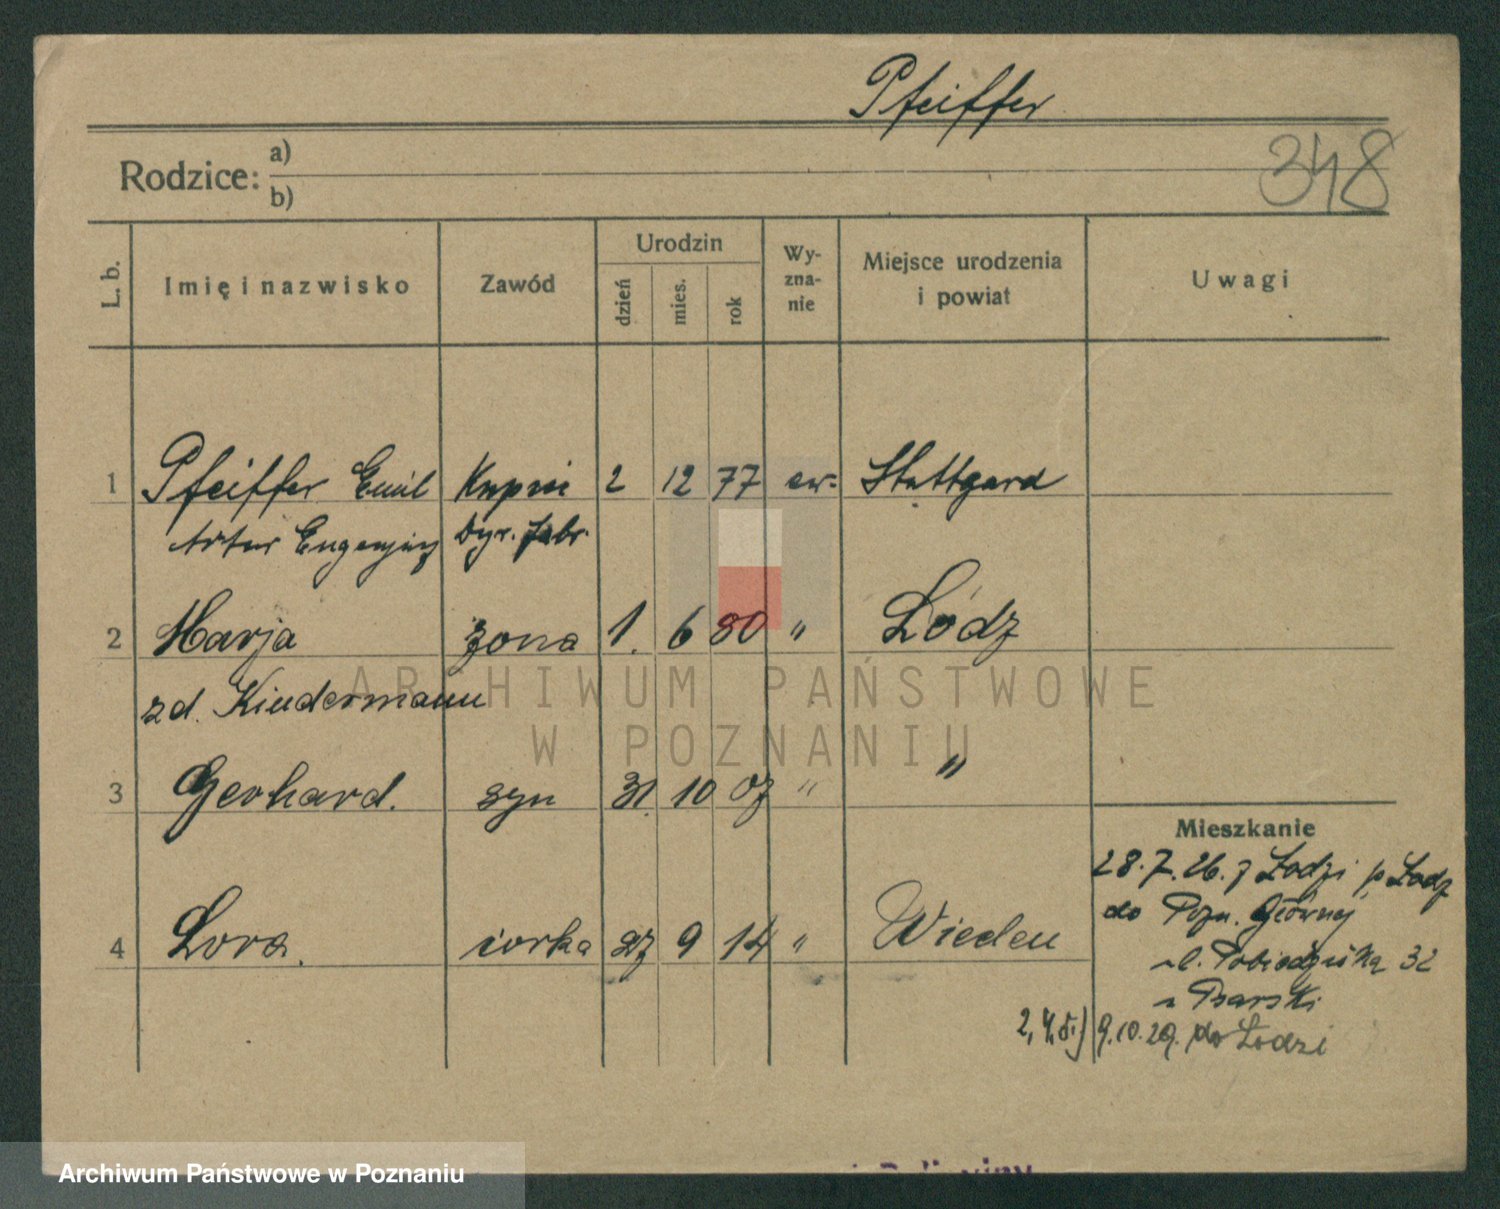 Pfeiffer
348
Rodzice: a)
b)
L. b. Imię i nazwisko Zawód Urodzin dzień mies. rok Wy-zna-nie Miejsce urodzenia i powiat Uwagi
1 Pfeiffer Emil Kupiec 2 12 77 ew. Stuttgard
Artur Eugenjusz Dyr. fabr.
2 Marja żona 1. 6 80 " Łódz
zd. Kindermann
3 Gerhard. syn 31. 10 07 " "
4 Lora. córka 27 9 14 " Wieden
Mieszkanie
28.7.26. z Łodzi p. Łodz
do Pozn. Głównej
ul. Pobiedziska 32
u Psarski
2, 4, 5.) 9.10.29. do Łodzi
ARCHIWUM PAŃSTWOWE
W POZNANIU
Archiwum Państwowe w Poznaniu